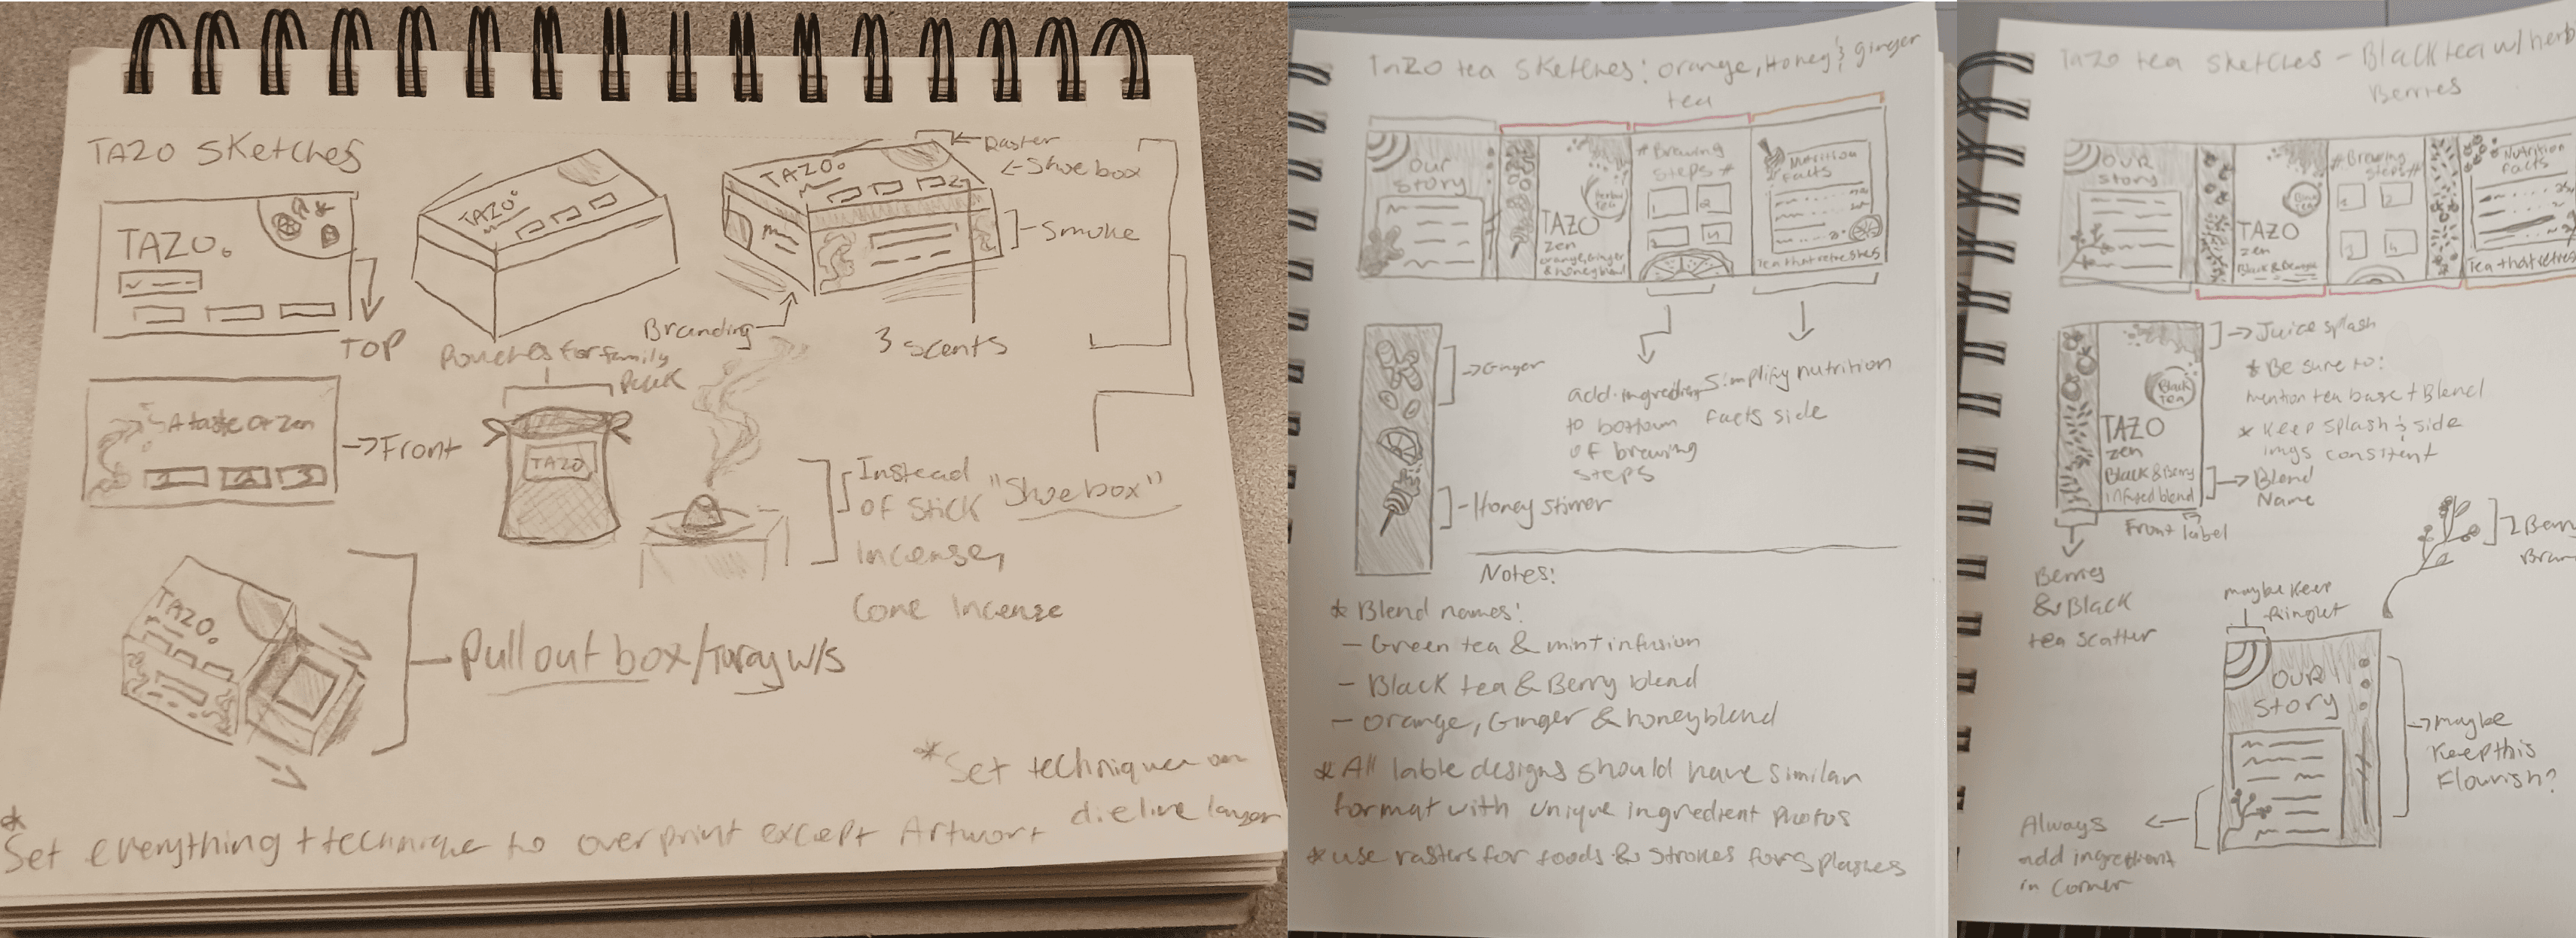 TAZO Sketches
TAZO.
TOP
TAZO.
TAZO.
Raster
Shoe box
Smoke
Branding
3 scents
A taste of zen
1 2 3
Front
Pouches for family
Pack
TAZO
Instead
of Stick
Incense,
Cone Incense
"Shoe box"
TAZO.
Pull out box/Tray w/s
*Set technique on
dieline layer
*
Set everything + technique to overprint except Artwork
TAZO tea sketches: orange, Honey & ginger
tea
our
story
Herbal
Tea
TAZO
zen
orange, Ginger
& honey blend
# Brewing
Steps #
1 2
3 4
Nutrition
facts
Tea that refreshes
Ginger
Honey stirrer
add ingredient
to bottom
of brewing
steps
Simplify nutrition
facts side
Notes:
* Blend names:
- Green tea & mint infusion
- Black tea & Berry blend
- orange, Ginger & honey blend
* All lable designs should have similar
format with unique ingredient photos
* use rasters for foods & strokes for splashes
TAZO tea sketches - Black tea w/ herb
Berries
OUR
story
Black
Tea
TAZO
zen
# Brewing
steps #
1 2
3 4
Nutrition
facts
Tea that refres
Juice splash
Black
Tea
TAZO
zen
Black & Berry
infused blend
* Be sure to:
mention tea base + Blend
* Keep splash & side
imgs consitent
Blend
Name
Front label
Berries
& Black
tea scatter
Berry
Bran
maybe keep
Ringlet
OUR
story
maybe
Keep this
Flourish?
Always
add ingredient
in corner